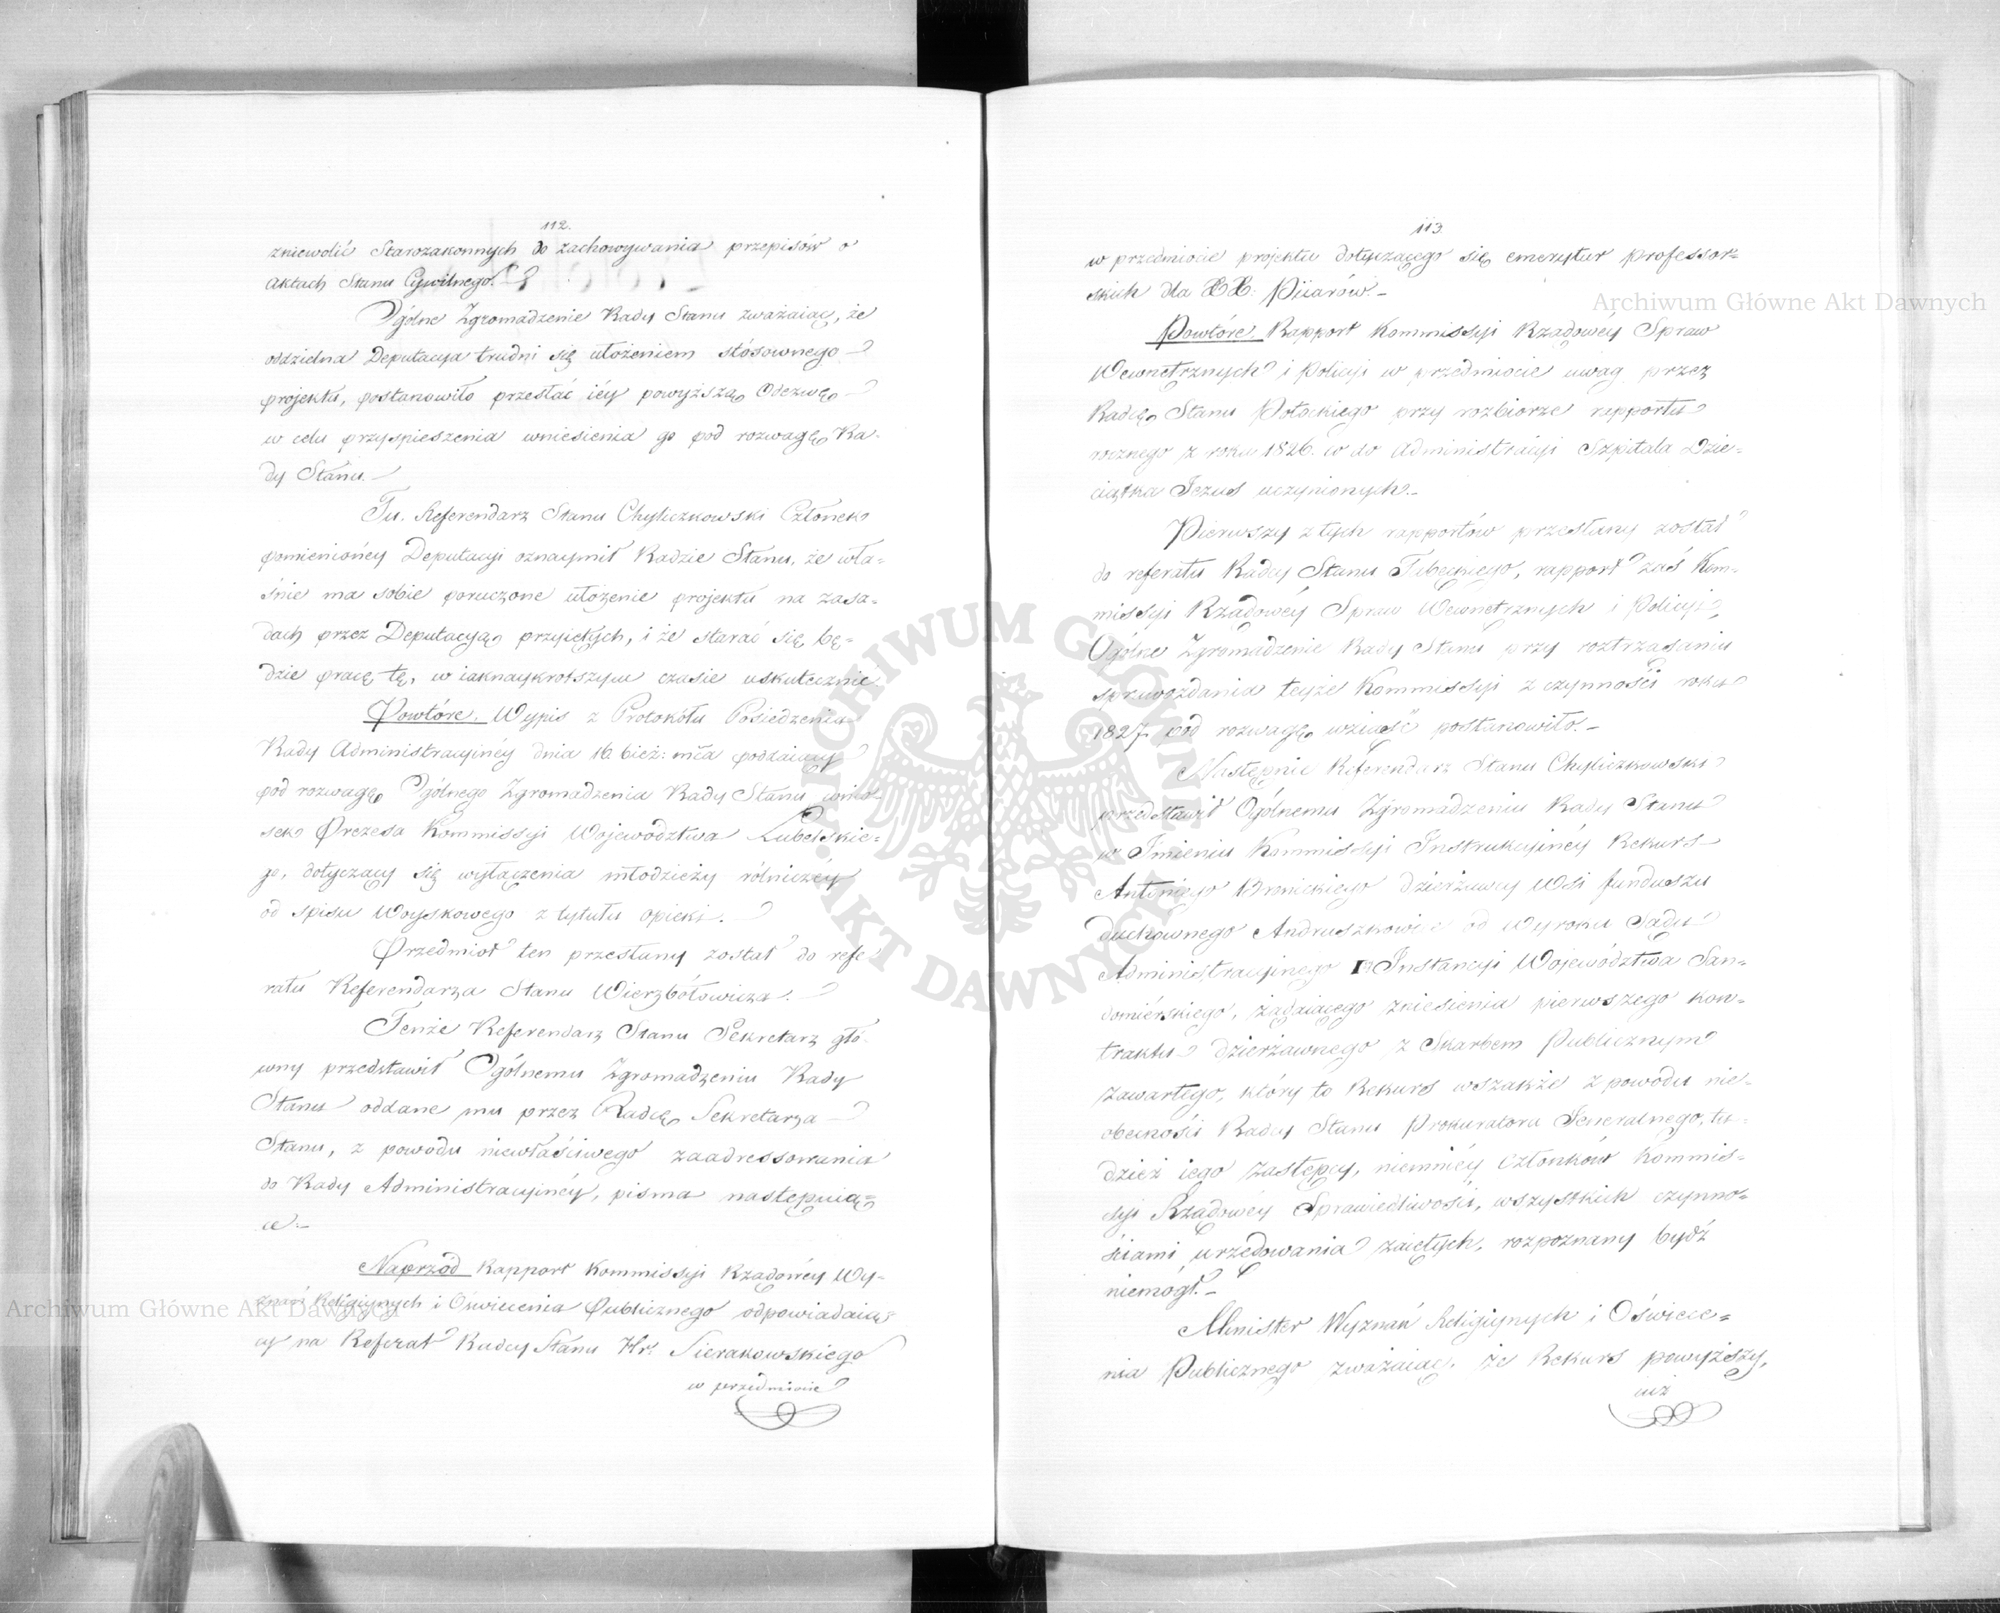 112.
zniewolić Starozakonnych do zachowywania przepisów o
aktach Stanu Cywilnego.
Ogólne Zgromadzenie Rady Stanu zważaiąc, że
oddzielna Deputacya trudni się ułożeniem stósownego
projektu, postanowiło przesłać iéy powyższą Odezwę
w celu przyspieszenia wniesienia go pod rozwagę Ra-
dy Stanu.—
Tu. Referendarz Stanu Chyliczkowski Członek
pomienionéy Deputacyi oznaymił Radzie Stanu, że wła-
śnie ma sobie poruczone ułożenie projektu na zasa-
dach przez Deputacyą przyiętych, i że starać się bę-
dzie pracę tę, w iaknaykrotszym czasie uskutecznić
Powtóre. Wypis z Protokółu Posiedzenia
Rady Administracyinéy dnia 16. bież: mca podzaiący
pod rozwagę Ogólnego Zgromadzenia Rady Stanu wnio-
sek Prezesa Kommissyi Województwa Lubelskie-
go, dotyczący się wyłączenia młodzieży rólniczéy
od spisu Woyskowego z tytułu opieki.
Przedmiot ten przesłany został do refe-
ratu Referendarza Stanu Wierzbółowicza.
Tenże Referendarz Stanu Sekretarz głó-
wny przedstawił Ogólnemu Zgromadzeniu Rady
Stanu oddane mu przez Radcę Sekretarza
Stanu, z powodu niewłaściwego zaadressowania
do Rady Administracyinéy, pisma następuią=
ce:—
Naprzód Rapport Kommissyi Rządowéy Wy-
znań Religiynych i Oświecenia Publicznego odpowiadaią-
cy na Referat Radcy Stanu Hr: Sierakowskiego
w przedmiocie
113
w przedmiocie projektu dotyczącego się emerytur professor=
skich dla XX. Piiarów.—
Powtóre Rapport Kommissyi Rządowéy Spraw
Wewnętrznych i Policyi w przedmiocie uwag przez
Radcę Stanu Potockiego przy rozbiorze rapportu
rocznego z roku 1826. w do Administracyi Szpitala Dzie-
ciątka Jezus uczynionych.—
Pierwszy z tych rapportów przesłany został
do referatu Radcy Stanu Tubęckiego, rapport zaś Kom-
missyi Rządowéy Spraw Wewnętrznych i Policyi,
Ogólne Zgromadzenie Rady Stanu przy roztrząsaniu
sprawozdania teyże Kommissyi z czynności roku
1827 pod rozwagę wziąść postanowiło.—
Następnie Referendarz Stanu Chyliczkowski
przedstawił Ogólnemu Zgromadzeniu Rady Stanu
w Imieniu Kommissyi Instrukcyinéy Rekurs
Antoniego Bronickiego dzierżawcy Wsi funduszu
duchownego Andruszkowice od Wyroku Sądu
Administracyinego I Instancyi Województwa San-
domiérskiego, żądaiącego zniesienia pierwszego kon-
traktu dzierżawnego z Skarbem Publicznym
zawartego, który to Rekurs wszakże z powodu nie-
obecności Radcy Stanu Prokuratora Jeneralnego, tu-
dzież iego zastępcy, niemniéy członków Kommis-
syi Rządowéy Sprawiedliwości, wszystkich czynno-
ściami urzędowania zaiętych, rozpoznany bydź
niemógł.—
Minister Wyznań Religiynych i Oświece=
nia Publicznego zważaiąc, że Rekurs powyższy,
iuż
Archiwum Główne Akt Dawnych
Archiwum Główne Akt Dawnych
ARCHIWUM GŁÓWNE
AKT DAWNYCH